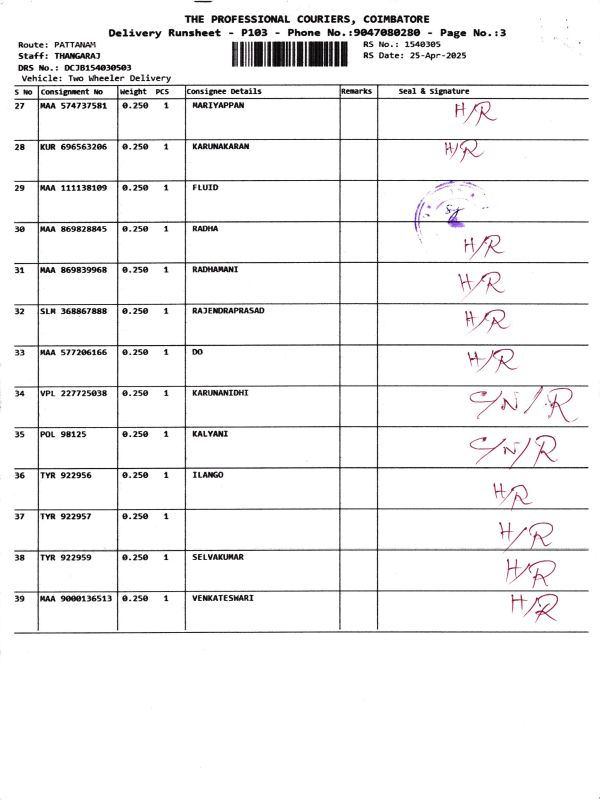 THE PROFESSIONAL COURIERS, COIMBATORE
Delivery Runsheet - P103 - Phone No.:9047080280 - Page No.:3
Route: PATTANAM RS No.: 1540305
Staff: THANGARAJ RS Date: 25-Apr-2025
DRS No.: DCJB154030503
Vehicle: Two Wheeler Delivery
S No Consignment No Weight PCS Consignee Details Remarks Seal & Signature
27 MAA 574737581 0.250 1 MARIYAPPAN H/R
28 KUR 696563206 0.250 1 KARUNAKARAN H/R
29 MAA 111138109 0.250 1 FLUID
30 MAA 869828845 0.250 1 RADHA H/R
31 MAA 869839968 0.250 1 RADHAMANI H/R
32 SLM 368867888 0.250 1 RAJENDRAPRASAD H/R
33 MAA 577206166 0.250 1 DO H/R
34 VPL 227725038 0.250 1 KARUNANIDHI C/N/R
35 POL 98125 0.250 1 KALYANI C/N/R
36 TYR 922956 0.250 1 ILANGO H/R
37 TYR 922957 0.250 1 H/R
38 TYR 922959 0.250 1 SELVAKUMAR H/R
39 MAA 9000136513 0.250 1 VENKATESWARI H/R